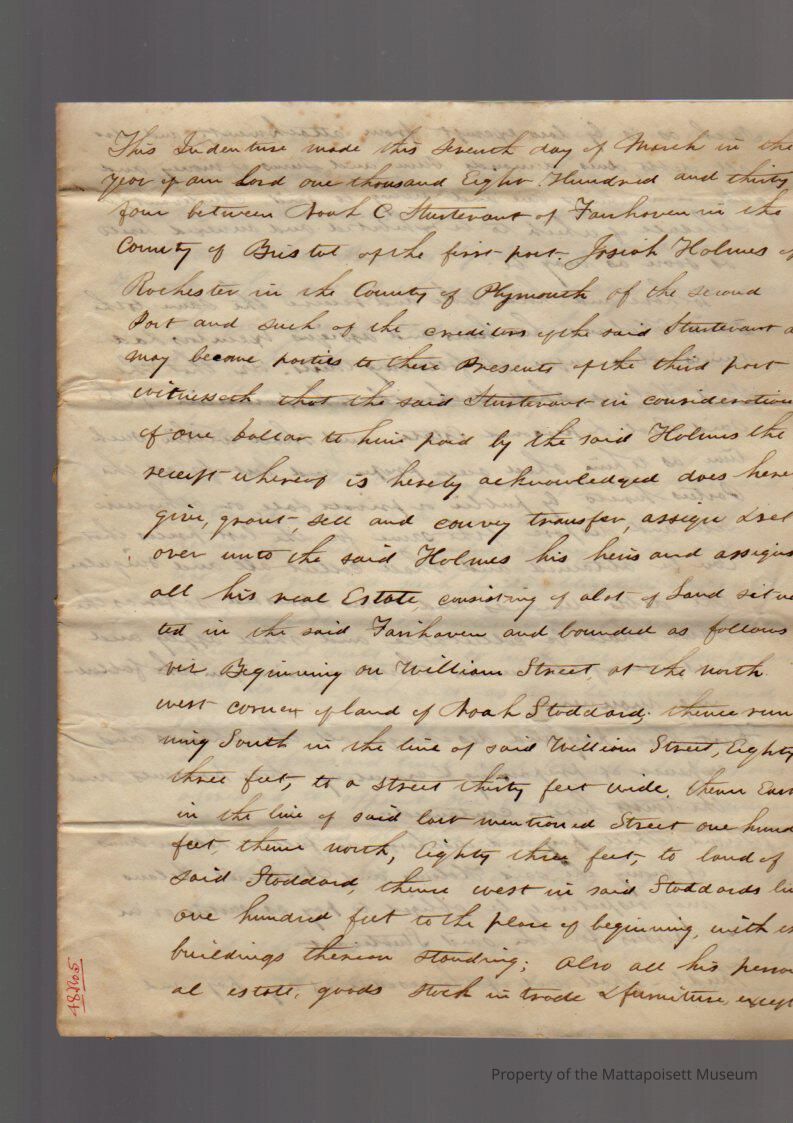 This Indenture made this seventh day of March in the
year of our Lord one thousand Eight Hundred and thirty
four between Noah C. Sturtevant of Fairhaven in the
County of Bristol of the first part. Josiah Holmes of
Rochester in the County of Plymouth of the second
Part and such of the creditors of the said Sturtevant a
may become parties to these Presents of the third part
witnesseth that the said Sturtevant in consideration
of one Dollar to him paid by the said Holmes the
receipt whereof is hereby acknowledged does here
give, grant, sell and convey transfer, assign & set
over unto the said Holmes his heirs and assigns
all his real Estate, consisting of a lot of Land situa
ted in the said Fairhaven and bounded as follows
viz Beginning on William Street, at the north
west corner of land of Noah Stoddard, thence run
ning South in the line of said William Street, Eighty
three feet, to a street thirty feet wide, thence East
in the line of said last mentioned Street one hund
feet, thence north, Eighty three feet, to land of
said Stoddard, thence west in said Stoddards li
one hundred feet to the place of beginning, with
buildings thereon standing; Also all his person
al estate, goods stock in trade & furniture, except
48.No.5
Property of the Mattapoisett Museum